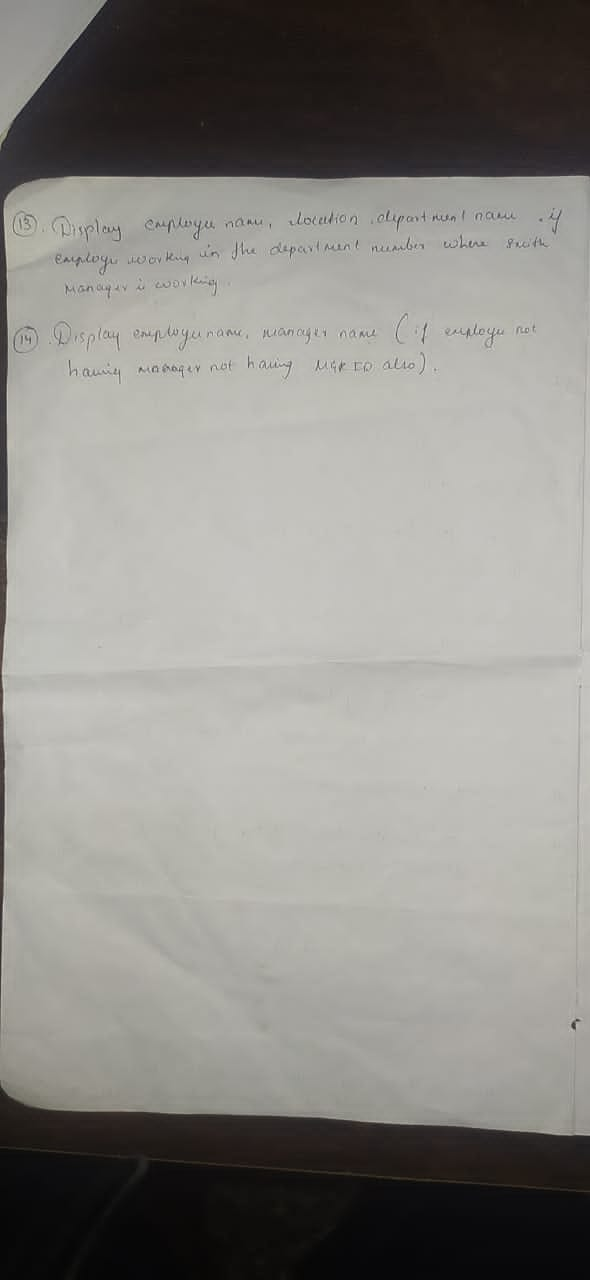 (13). Display employee name, location, department name .if
employe working in the department number where smith
Manager is working.
(14). Display employee name, manager name (if employe not
having manager not having MGR ID also).